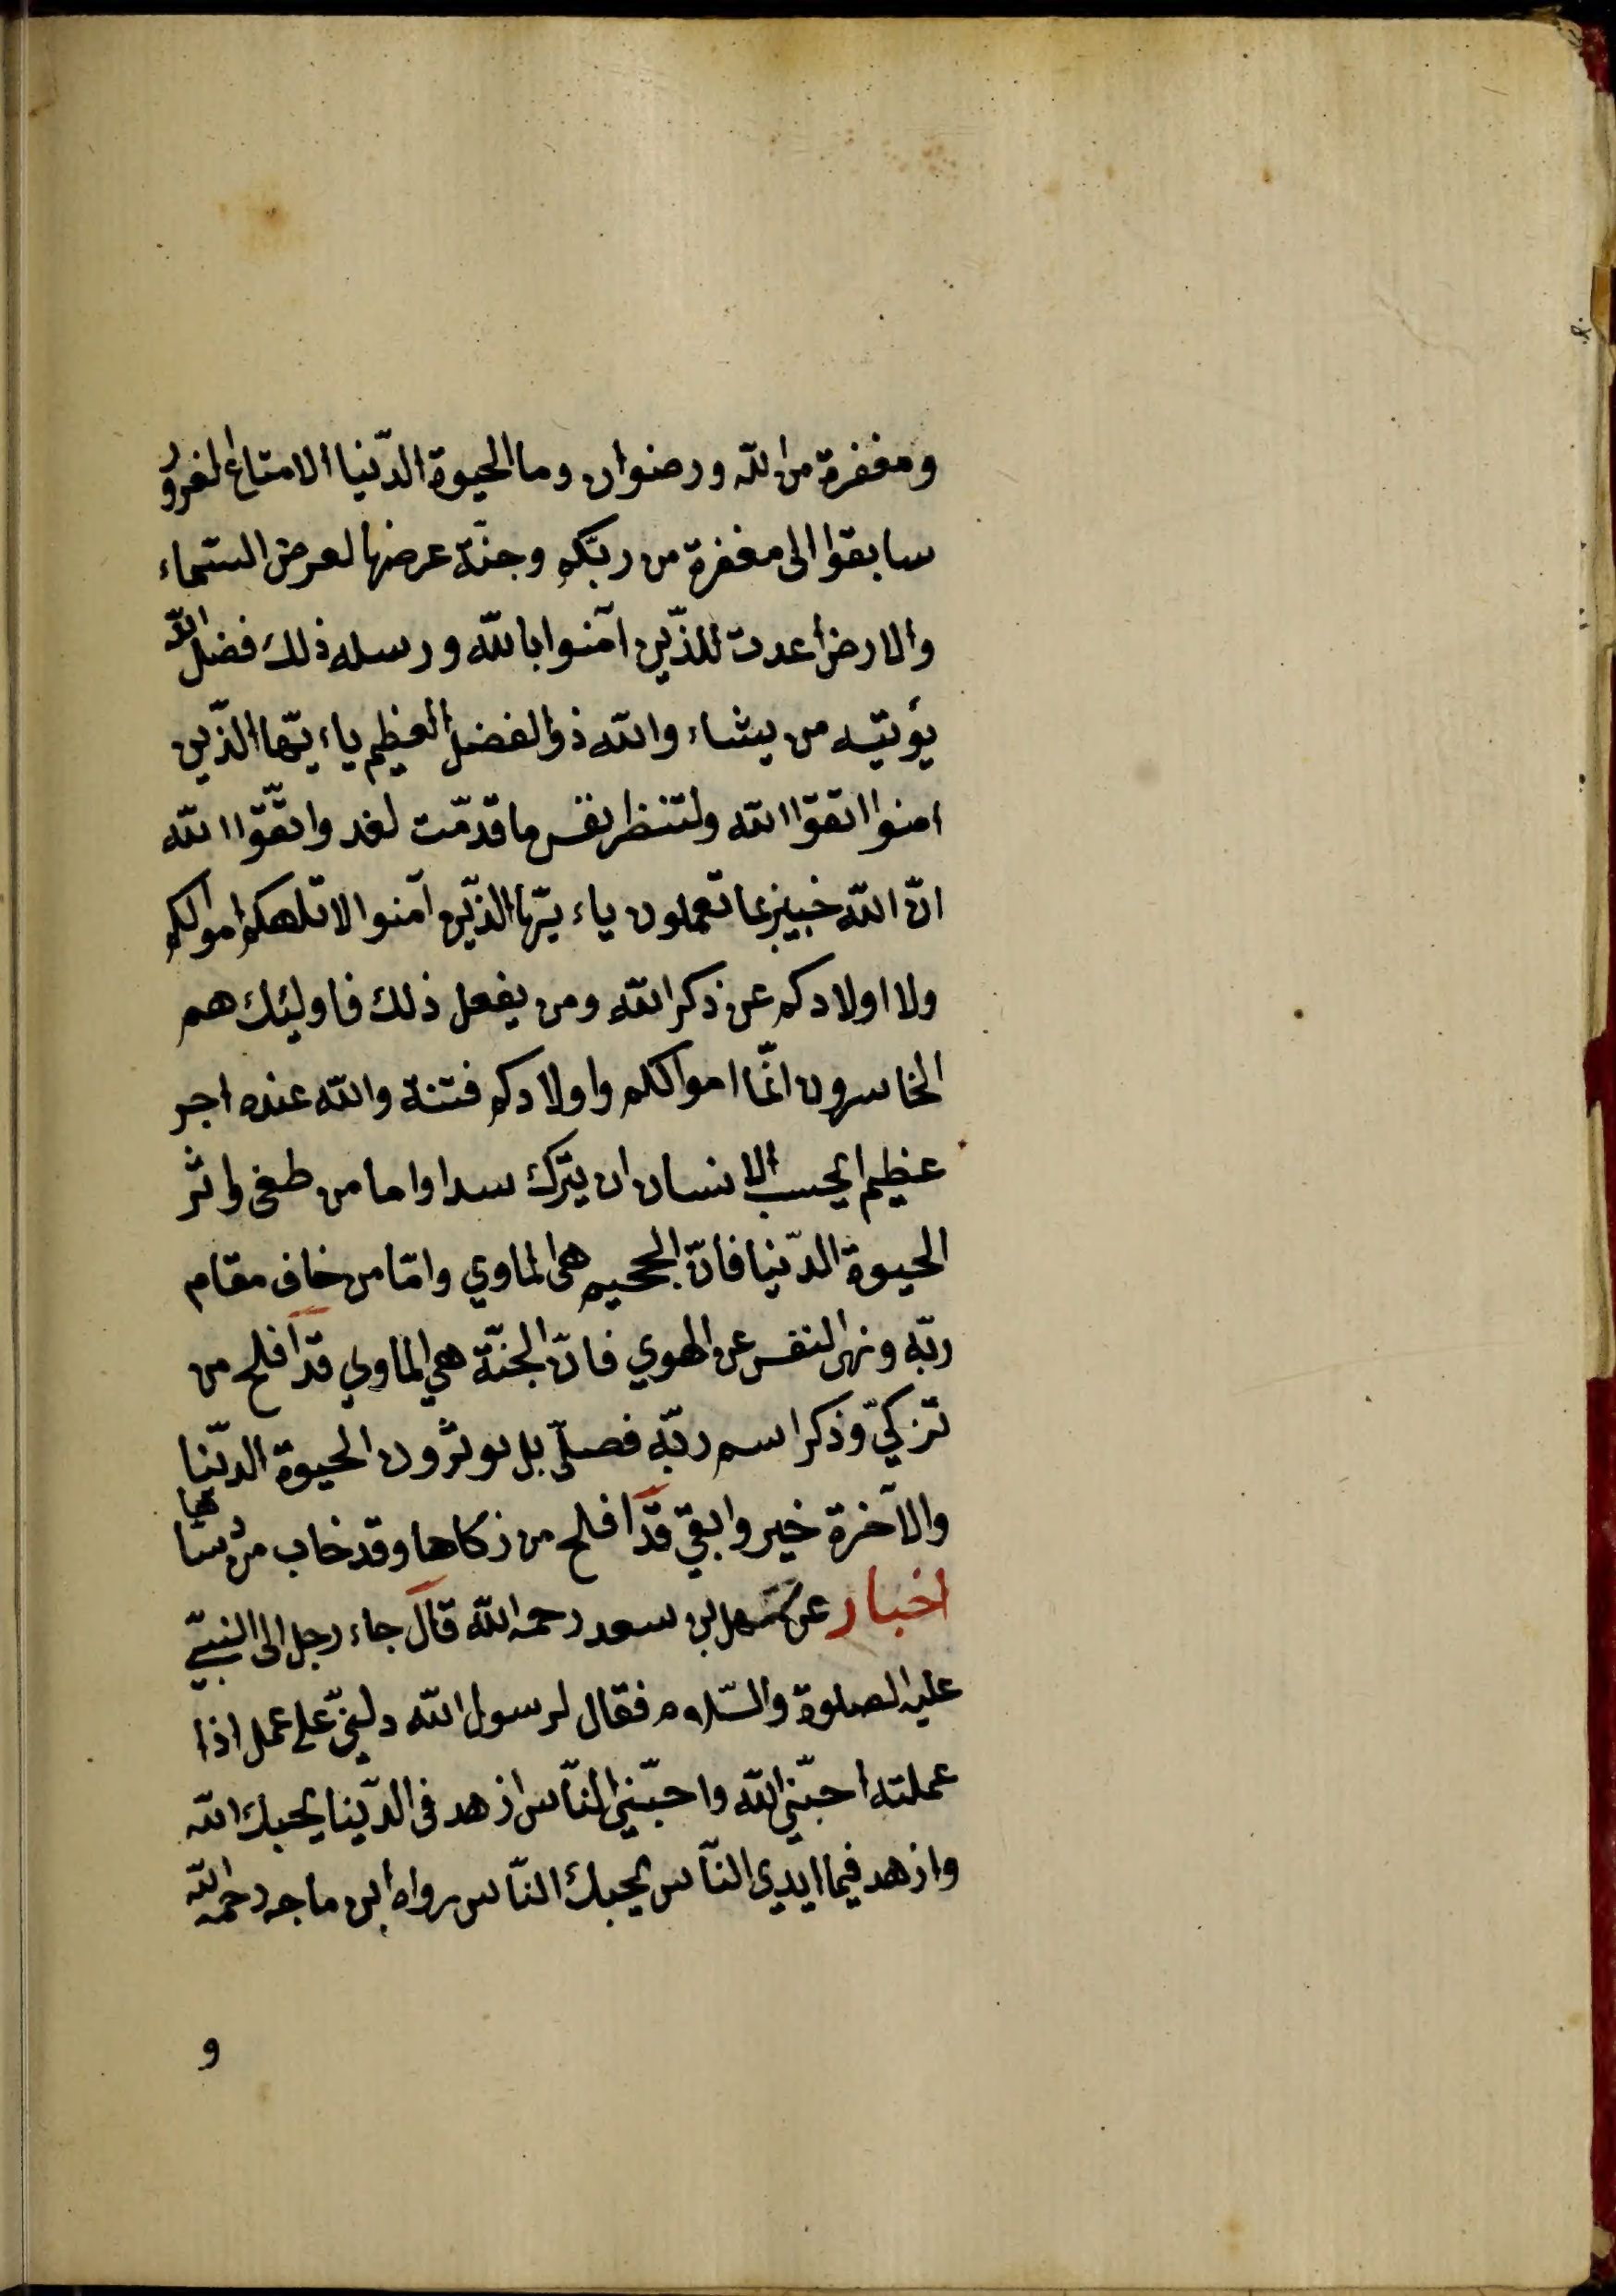 ومغفرة من الله ورضوان وما الحيوة الدّنيا الا متاع الغرور
سابقوا الى مغفرة من ربّكم وجنّة عرضها لعرض السّماء
والارض اعدت للذّين آمنوا بالله ورسله ذلك فضل الله
يؤتيه من يشاء والله ذو الفضل العظيم ياءيّها الذّين
امنوا اتقوّا الله ولتنظر نفس ما قدّمت لغد واتقّوا الله
انّ الله خبير بما تعملون ياءيّها الذّين آمنوا لا تلهكم اموالكم
ولا اولادكم عن ذكر الله ومن يفعل ذلك فاوليئك هم
الخاسرون انّما اموالكم واولادكم فتنة والله عنده اجر
عظيم ايحسب الانسان ان يترك سدا واما من طغى واثر
الحيوة الدّنيا فانّ الجحيم هى الماوي وامّا من خاف مقام
ربّه ونهى النفس عن الهوي فانّ الجنّة هي الماوي قد افلح من
تزكيّ وذكر اسم ربّه فصلّى بل توثرون الحيوة الدّنيا
والآخرة خير وابقي قد افلح من زكاها وقد خاب من دسّاها
اخبار عن سهل بن سعد رحمه الله قال جاء رجل الى النبيّ
عليه الصلوة والسّلام فقال لرسول الله دلّني على عمل اذا
عملته احبّني الله واحبّني النّاس ازهد فى الدّنيا يحبك الله
وازهد فيما ايدي النّاس يحبك النّاس رواه ابن ماجه رحمه الله
و